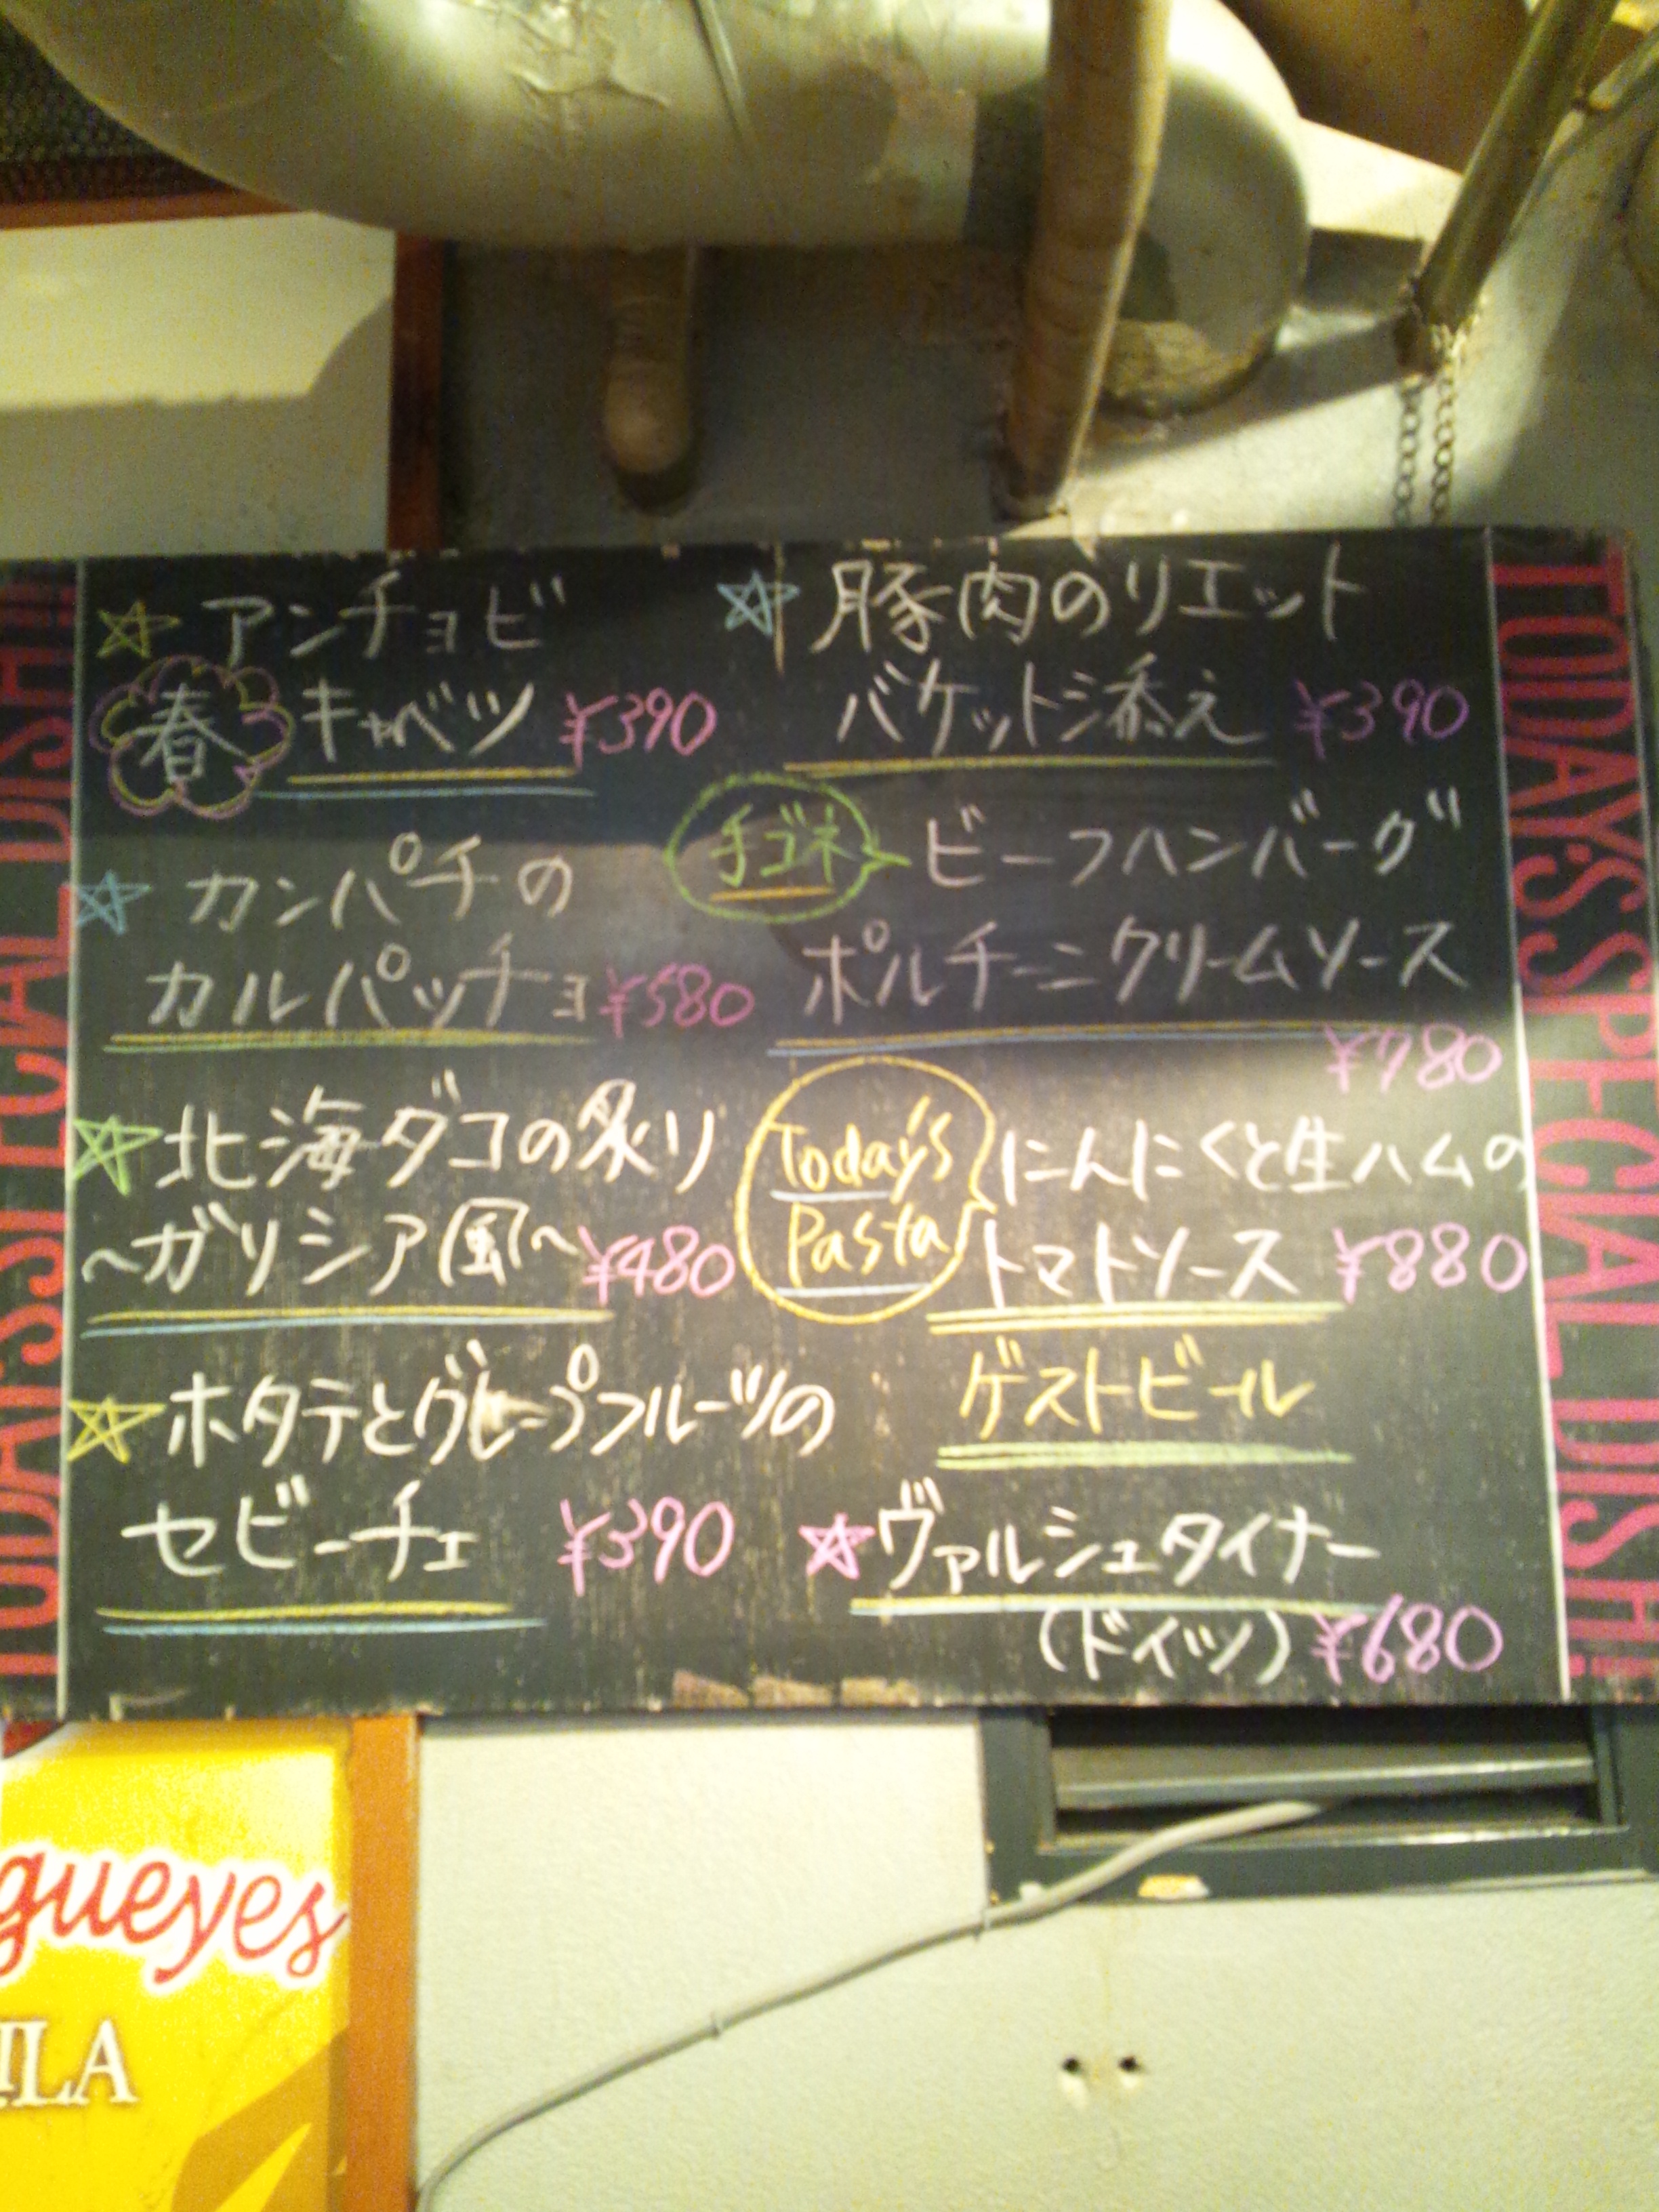 TODAY'S SPECIAL DISH!
アンチョビ
春キャベツ ¥390
カンパチの
カルパッチョ ¥580
北海ダコの炙り
~ガリシア風~ ¥480
ホタテとグレープフルーツの
セビーチェ ¥390
豚肉のリエット
バケット添え ¥390
手ゴネ ビーフハンバーグ
ポルチーニクリームソース
¥780
Today's
Pasta
にんにくと生ハムの
トマトソース ¥880
ゲストビール
ヴァルシュタイナー
(ドイツ) ¥680
TODAY'S SPECIAL DISH!
gueyes
ILA